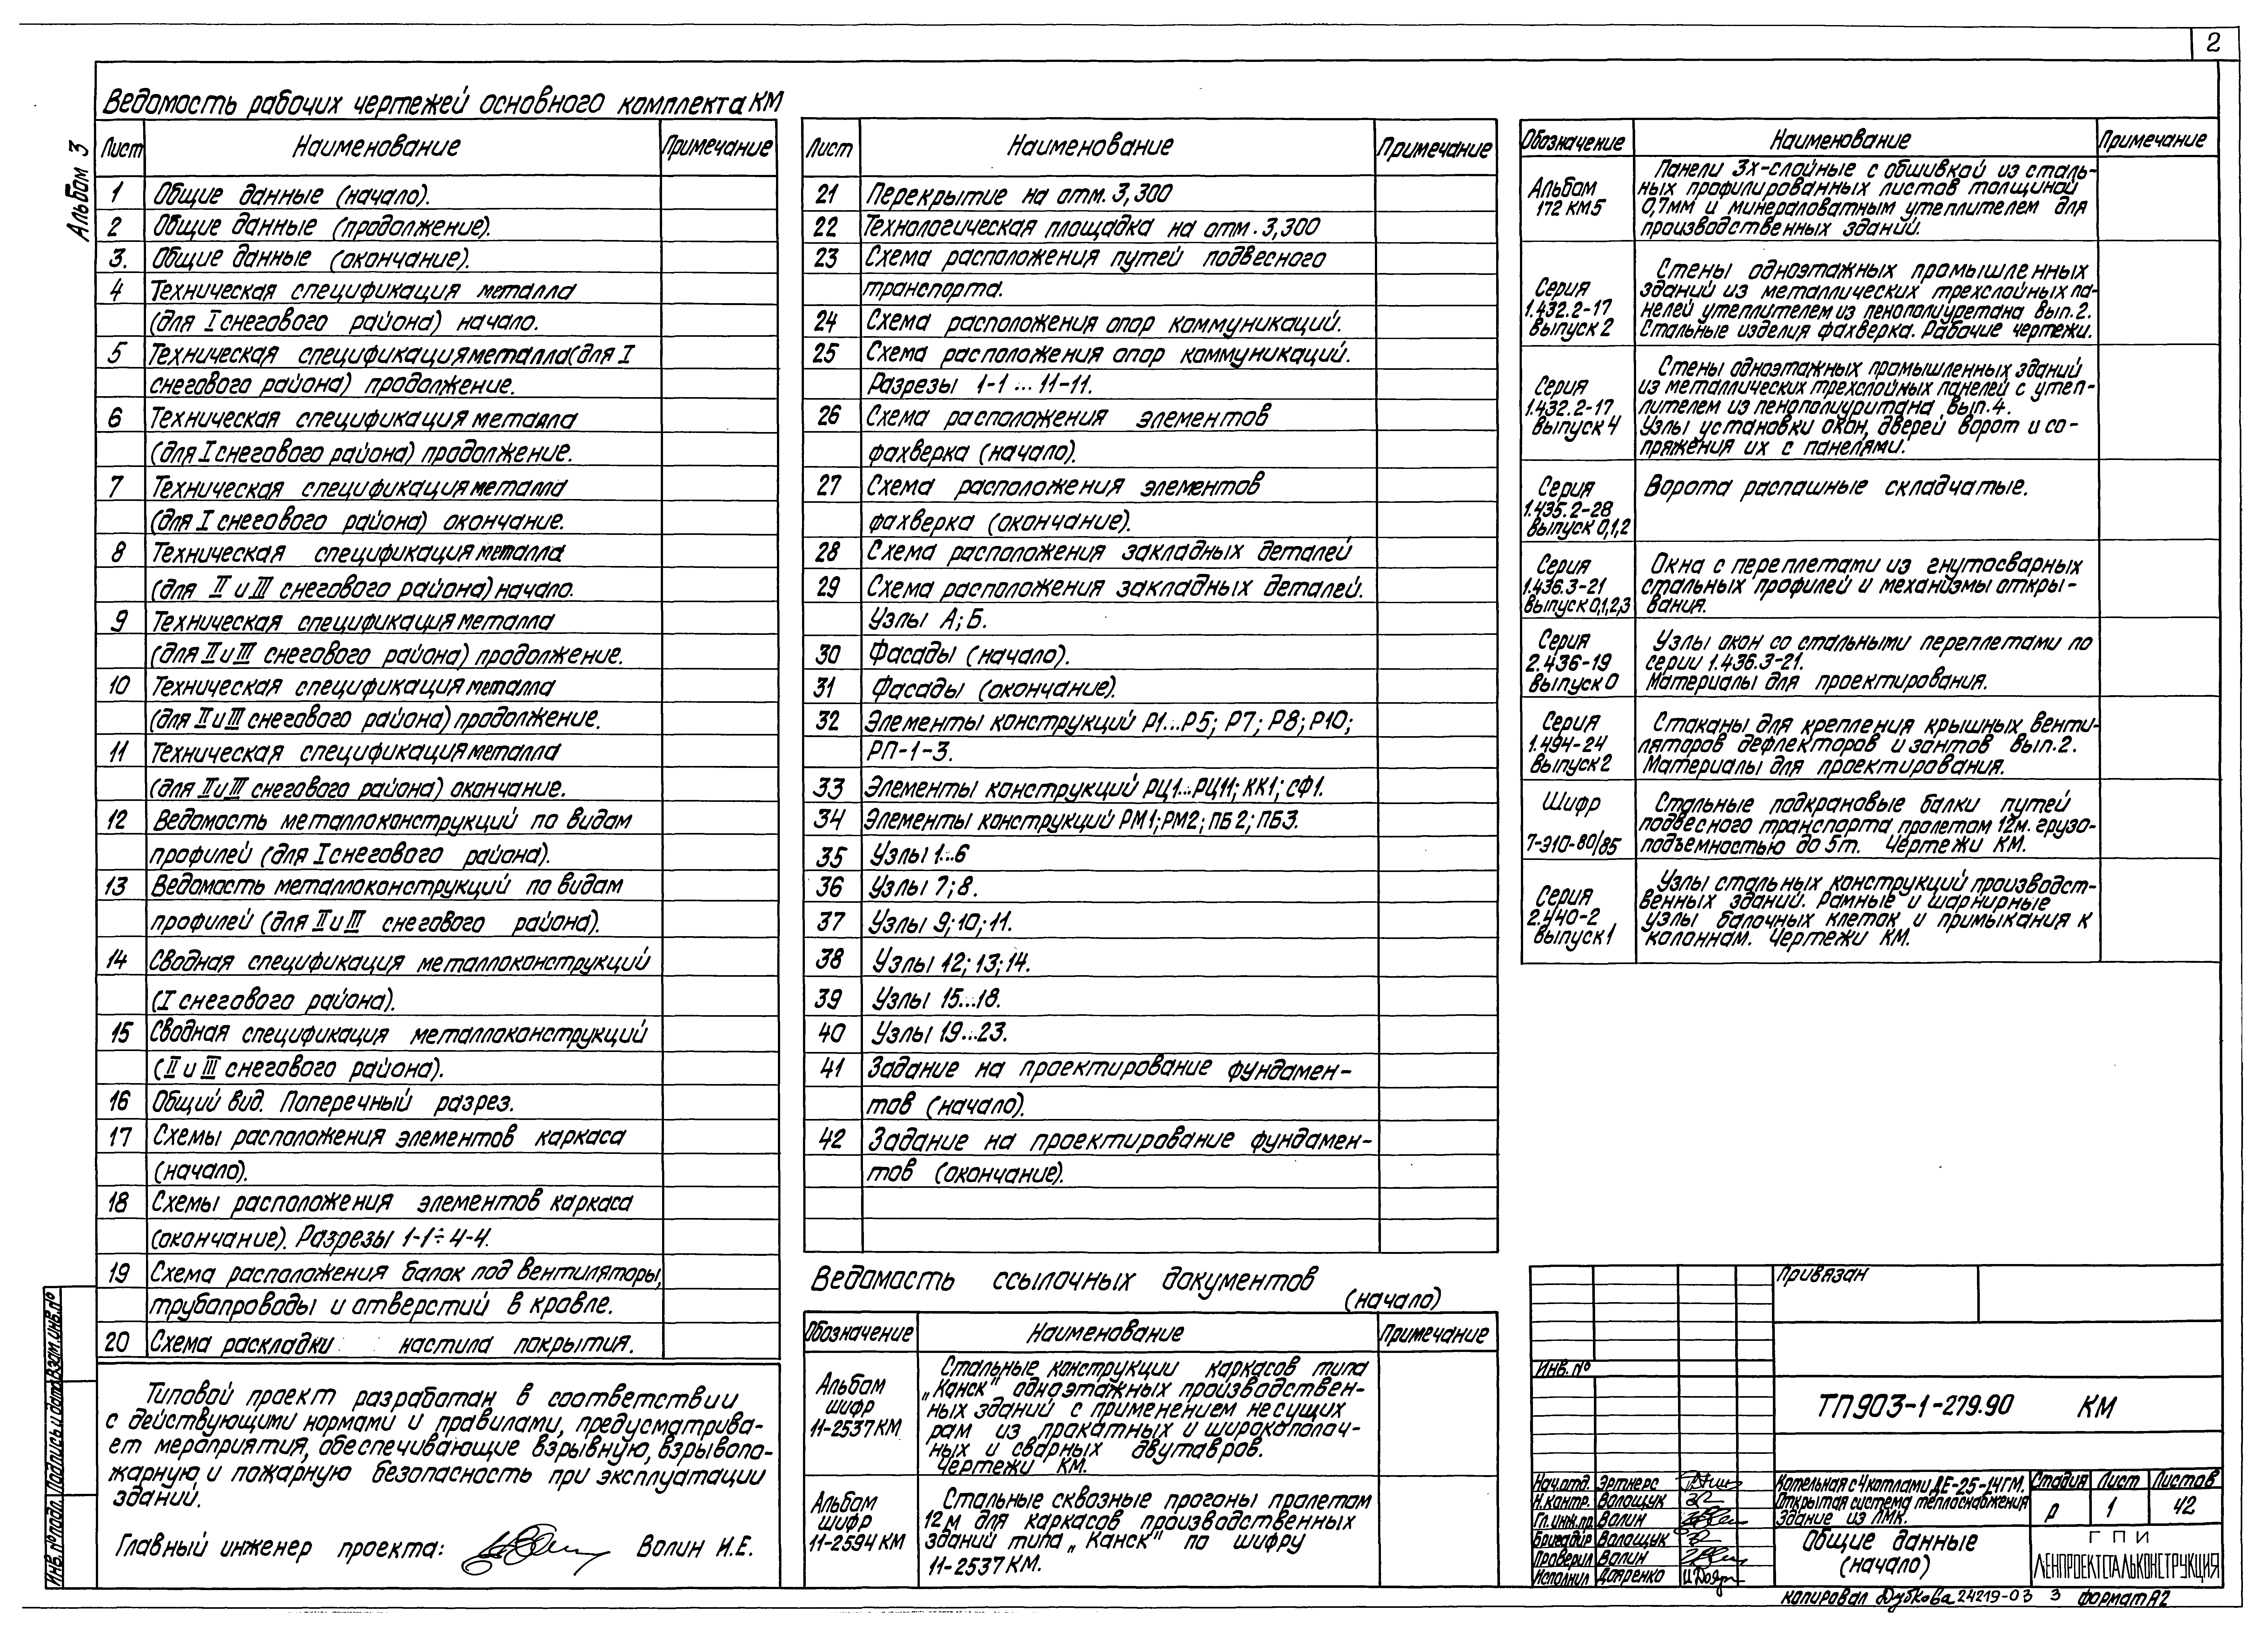 2
Альбом 3
Ведомость рабочих чертежей основного комплекта КМ
Лист Наименование Примечание
1 Общие данные (начало).
2 Общие данные (продолжение).
3. Общие данные (окончание).
4 Техническая спецификация металла
(для I снегового района) начало.
5 Техническая спецификация металла (для I
снегового района) продолжение.
6 Техническая спецификация металла
(для I снегового района) продолжение.
7 Техническая спецификация металла
(для I снегового района) окончание.
8 Техническая спецификация металла
(для II и III снегового района) начало.
9 Техническая спецификация металла
(для II и III снегового района) продолжение.
10 Техническая спецификация металла
(для II и III снегового района) продолжение.
11 Техническая спецификация металла
(для II и III снегового района) окончание.
12 Ведомость металлоконструкций по видам
профилей (для I снегового района).
13 Ведомость металлоконструкций по видам
профилей (для II и III снегового района).
14 Сводная спецификация металлоконструкций
(I снегового района).
15 Сводная спецификация металлоконструкций
(II и III снегового района).
16 Общий вид. Поперечный разрез.
17 Схемы расположения элементов каркаса
(начало).
18 Схемы расположения элементов каркаса
(окончание). Разрезы 1-1÷4-4.
19 Схема расположения балок под вентиляторы,
трубопроводы и отверстий в кровле.
20 Схема раскладки настила покрытия.
Типовой проект разработан в соответствии
с действующими нормами и правилами, предусматрива-
ет мероприятия, обеспечивающие взрывную, взрывопо-
жарную и пожарную безопасность при эксплуатации
зданий.
Главный инженер проекта: Волин И.Е.
Лист Наименование Примечание
21 Перекрытие на отм. 3,300
22 Технологическая площадка на отм. 3,300
23 Схема расположения путей подвесного
транспорта.
24 Схема расположения опор коммуникаций.
25 Схема расположения опор коммуникаций.
Разрезы 1-1...11-11.
26 Схема расположения элементов
фахверка (начало).
27 Схема расположения элементов
фахверка (окончание).
28 Схема расположения закладных деталей
29 Схема расположения закладных деталей.
Узлы А; Б.
30 Фасады (начало).
31 Фасады (окончание).
32 Элементы конструкций Р1...Р5; Р7; Р8; Р10;
РП-1-3.
33 Элементы конструкций РЦ1...РЦ11; КК1; СФ1.
34 Элементы конструкций РМ1; РМ2; ПБ2; ПБ3.
35 Узлы 1...6
36 Узлы 7; 8.
37 Узлы 9; 10; 11.
38 Узлы 12; 13; 14.
39 Узлы 15...18.
40 Узлы 19...23.
41 Задание на проектирование фундамен-
тов (начало).
42 Задание на проектирование фундамен-
тов (окончание).
Ведомость ссылочных документов
(начало)
Обозначение Наименование Примечание
Альбом
шифр
11-2537 КМ
Стальные конструкции каркасов типа
„Канск" одноэтажных производствен-
ных зданий с применением несущих
рам из прокатных и широкополоч-
ных и сварных двутавров.
Чертежи КМ.
Альбом
шифр
11-2594 КМ
Стальные сквозные прогоны пролетом
12 м для каркасов производственных
зданий типа „Канск" по шифру
11-2537 КМ.
Обозначение Наименование Примечание
Альбом
172 КМ5
Панели 3х-слойные с обшивкой из сталь-
ных профилированных листов толщиной
0,7мм и минераловатным утеплителем для
производственных зданий.
Серия
1.432.2-17
выпуск 2
Стены одноэтажных промышленных
зданий из металлических трехслойных па-
нелей утеплителем из пенополиуретана вып. 2.
Стальные изделия фахверка. Рабочие чертежи.
Серия
1.432.2-17
выпуск 4
Стены одноэтажных промышленных зданий
из металлических трехслойных панелей с утеп-
лителем из пенополиуритана вып. 4.
Узлы установки окон, дверей ворот и со-
пряжения их с панелями.
Серия
1.435.2-28
выпуск 0,1,2
Ворота распашные складчатые.
Серия
1.436.3-21
выпуск 0,1,2,3
Окна с переплетами из гнутосварных
стальных профилей и механизмы откры-
вания.
Серия
2.436-19
выпуск 0
Узлы окон со стальными переплетами по
серии 1.436.3-21.
Материалы для проектирования.
Серия
1.494-24
выпуск 2
Стаканы для крепления крышных венти-
ляторов дефлекторов и зонтов вып. 2.
Материалы для проектирования.
Шифр
7-Э10-80/85
Стальные подкрановые балки путей
подвесного транспорта пролетом 12м. грузо-
подъемностью до 5т. Чертежи КМ.
Серия
2.440-2
выпуск 1
Узлы стальных конструкций производст-
венных зданий. Рамные и шарнирные
узлы балочных клеток и примыкания к
колоннам. Чертежи КМ.
Привязан
Инв. №
ТП 903-1-279.90 КМ
Нач.отд. Эртнерс
Н.контр. Волощук
Гл.инж.пр. Волин
Бригадир Волощук
Проверил Волин
Исполнил Дояренко
Котельная с 4 котлами ДЕ-25-14ГМ.
Открытая система теплоснабжения
Здание из ЛМК.
Стадия Лист Листов
Р 1 42
Общие данные
(начало)
ГПИ
ЛЕНПРОЕКТСТАЛЬКОНСТРУКЦИЯ
Копировал Дубкова 24219-03 3 Формат А2
Инв. № подл. Подпись и дата Взам. инв. №